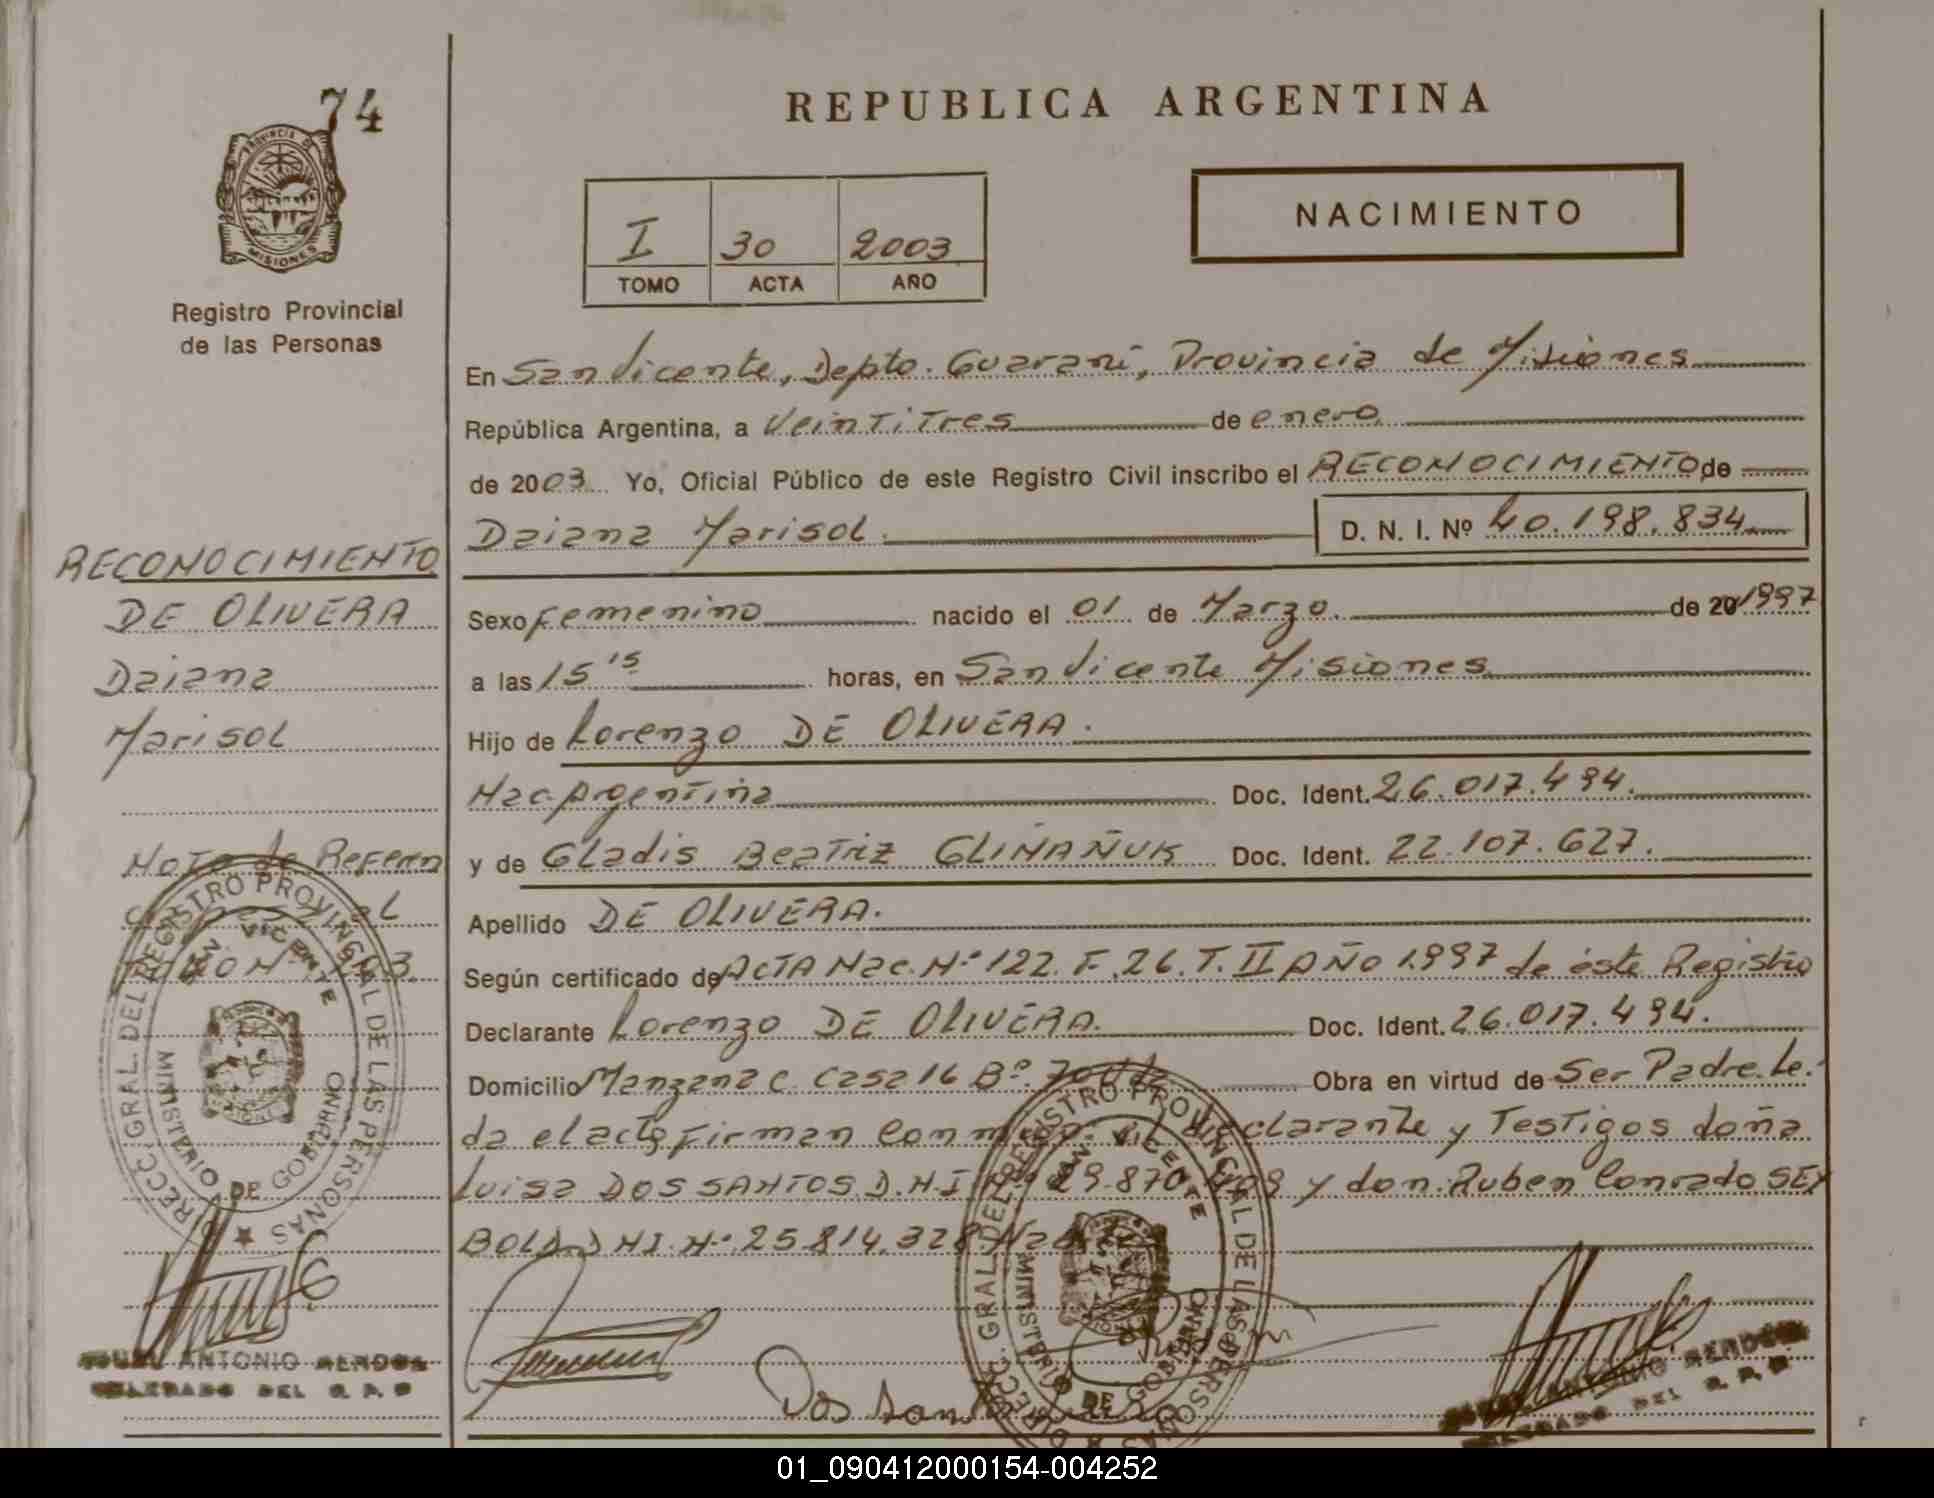 74
PROVINCIA DE
MISIONES
Registro Provincial
de las Personas
REPUBLICA ARGENTINA
I 30 2003
TOMO ACTA AÑO
NACIMIENTO
En San Vicente, Depto. Guaraní, Provincia de Misiones
República Argentina, a VeinTiTres de enero
de 2003 Yo, Oficial Público de este Registro Civil inscribo el RECONOCIMIENTO de
Daiana Marisol. D. N. I. Nº 40.198.834
Sexo Femenino nacido el 01 de Marzo. de 20 1997
a las 15 15 horas, en San Vicente Misiones
Hijo de Lorenzo DE OLIVERA.
Nac. Argentina Doc. Ident. 26.017.494.
y de Gladis Beatriz GLINAÑUK Doc. Ident. 22.107.627.
Apellido DE OLIVERA.
Según certificado de ACTA Nac. Nº 122. F. 26. T. II AÑO 1.997 de éste Registro
Declarante Lorenzo DE OLIVERA. Doc. Ident. 26.017.494.
Domicilio Manzana C Casa 16 Bº. 70 Obra en virtud de Ser Padre. Le.
da el acta Firman Con y Testigos doña
Luisa DOS SANTOS D.N.I. y don Ruben Conrado SEY
BOLD D.N.I. Nº 25.814.328
RECONOCIMIENTO
DE OLIVERA
Daiana
Marisol
Nota de Referen
DIRECC. GRAL. DEL REGISTRO PROVINCIAL DE LAS PERSONAS
SAN VICENTE
MINISTERIO DE GOBIERNO
ANTONIO
DELEGADO DEL R. P. P
Dos Santos
DIRECC. GRAL. DEL REGISTRO PROVINCIAL DE LAS PERSONAS
SAN VICENTE
MINISTERIO DE GOBIERNO
ANTONIO
DELEGADO DEL R. P. P
01_090412000154-004252